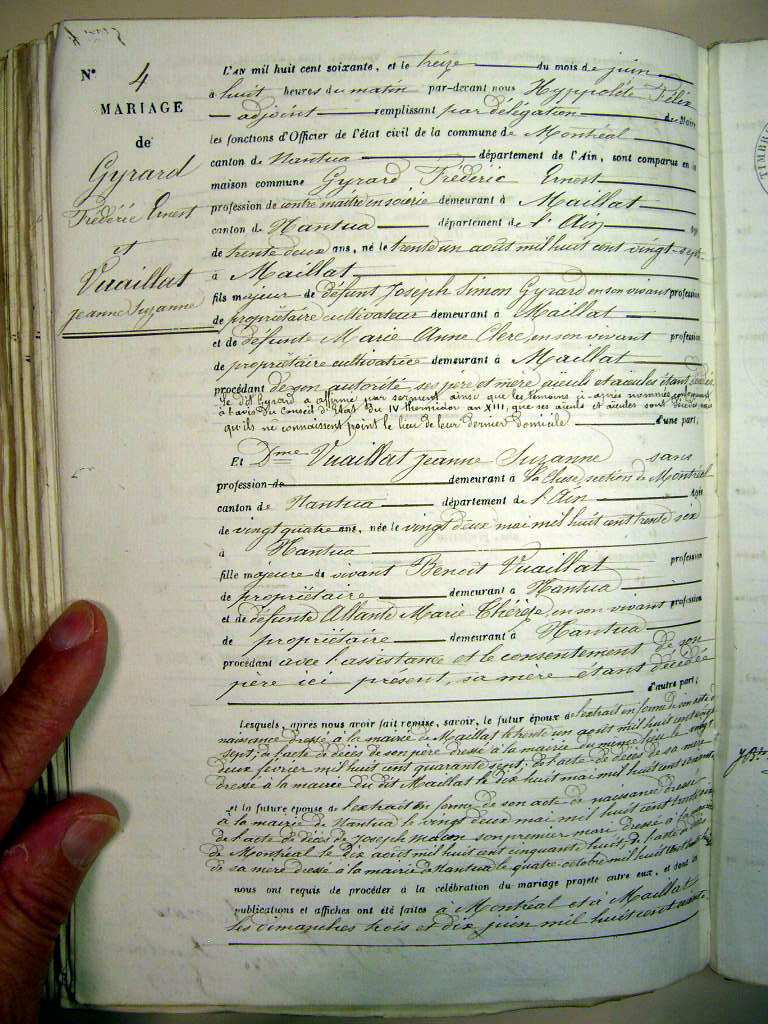 N° 4
MARIAGE
de
Gyrard
Frédéric Ernest
et
Vuaillat
Jeanne Suzanne
L'AN mil huit cent soixante, et le treize du mois de juin
à huit heures du matin par-devant nous Hyppolite Félix
adjoint remplissant par délégation du Maire
les fonctions d'Officier de l'état civil de la commune de Montréal
canton de Nantua département de l'Ain, sont comparus en la
maison commune Gyrard Frédéric Ernest
profession de contre maître en scierie demeurant à Maillat
canton de Nantua département de l'Ain âgé
de trente deux ans, né le trente un août mil huit cent vingt-sept
à Maillat
fils majeur de défunt Joseph Simon Gyrard en son vivant profession
de propriétaire cultivateur demeurant à Maillat
et de défunte Marie Anne Clerc, en son vivant profession
de propriétaire cultivatrice demeurant à Maillat
procédant de son autorité, ses père et mère, aïeuls et aïeules étant décédés
le dit Gyrard a affirmé par serment, ainsi que les témoins ci-après nommés, conformément
à l'avis du Conseil d'Etat du IV thermidor an XIII, que ses aïeuls et aïeules sont décédés, mais
qu'ils ne connaissent point le lieu de leur dernier domicile d'une part;
Et Dme Vuaillat Jeanne Suzanne sans
profession de demeurant à la Cluse, section de Montréal
canton de Nantua département de l'Ain âgée
de vingt quatre ans, née le vingt deux mai mil huit cent trente six
à Nantua
fille majeure de vivant Benoit Vuaillat profession
de propriétaire demeurant à Nantua
et de défunte Allante Marie Thérèse, en son vivant profession
de propriétaire demeurant à Nantua
procédant avec l'assistance et le consentement de son
père ici présent, sa mère étant décédée
d'autre part;
Lesquels, après nous avoir fait remise, savoir, le futur époux de l'extrait en forme de son acte de
naissance dressé à la mairie de Maillat le trente un août mil huit cent vingt
sept; de l'acte de décès de son père dressé à la mairie du même lieu le vingt
deux février mil huit cent quarante sept; de l'acte de décès de sa mère
dressé à la mairie du dit Maillat le dix huit mai mil huit cent
et la future épouse de l'extrait en forme de son acte de naissance dressé
à la mairie de Nantua le vingt deux mai mil huit cent trente six
de l'acte de décès de Joseph son premier mari dressé à la mairie
de Montréal le dix août mil huit cent cinquante huit; de l'acte de décès
de sa mère dressé à la mairie de Nantua le quatre octobre mil huit cent
nous ont requis de procéder à la célébration du mariage projeté entre eux, et dont les
publications et affiches ont été faites à Montréal et à Maillat
les dimanches trois et dix juin mil huit cent soixante
TIMBRE